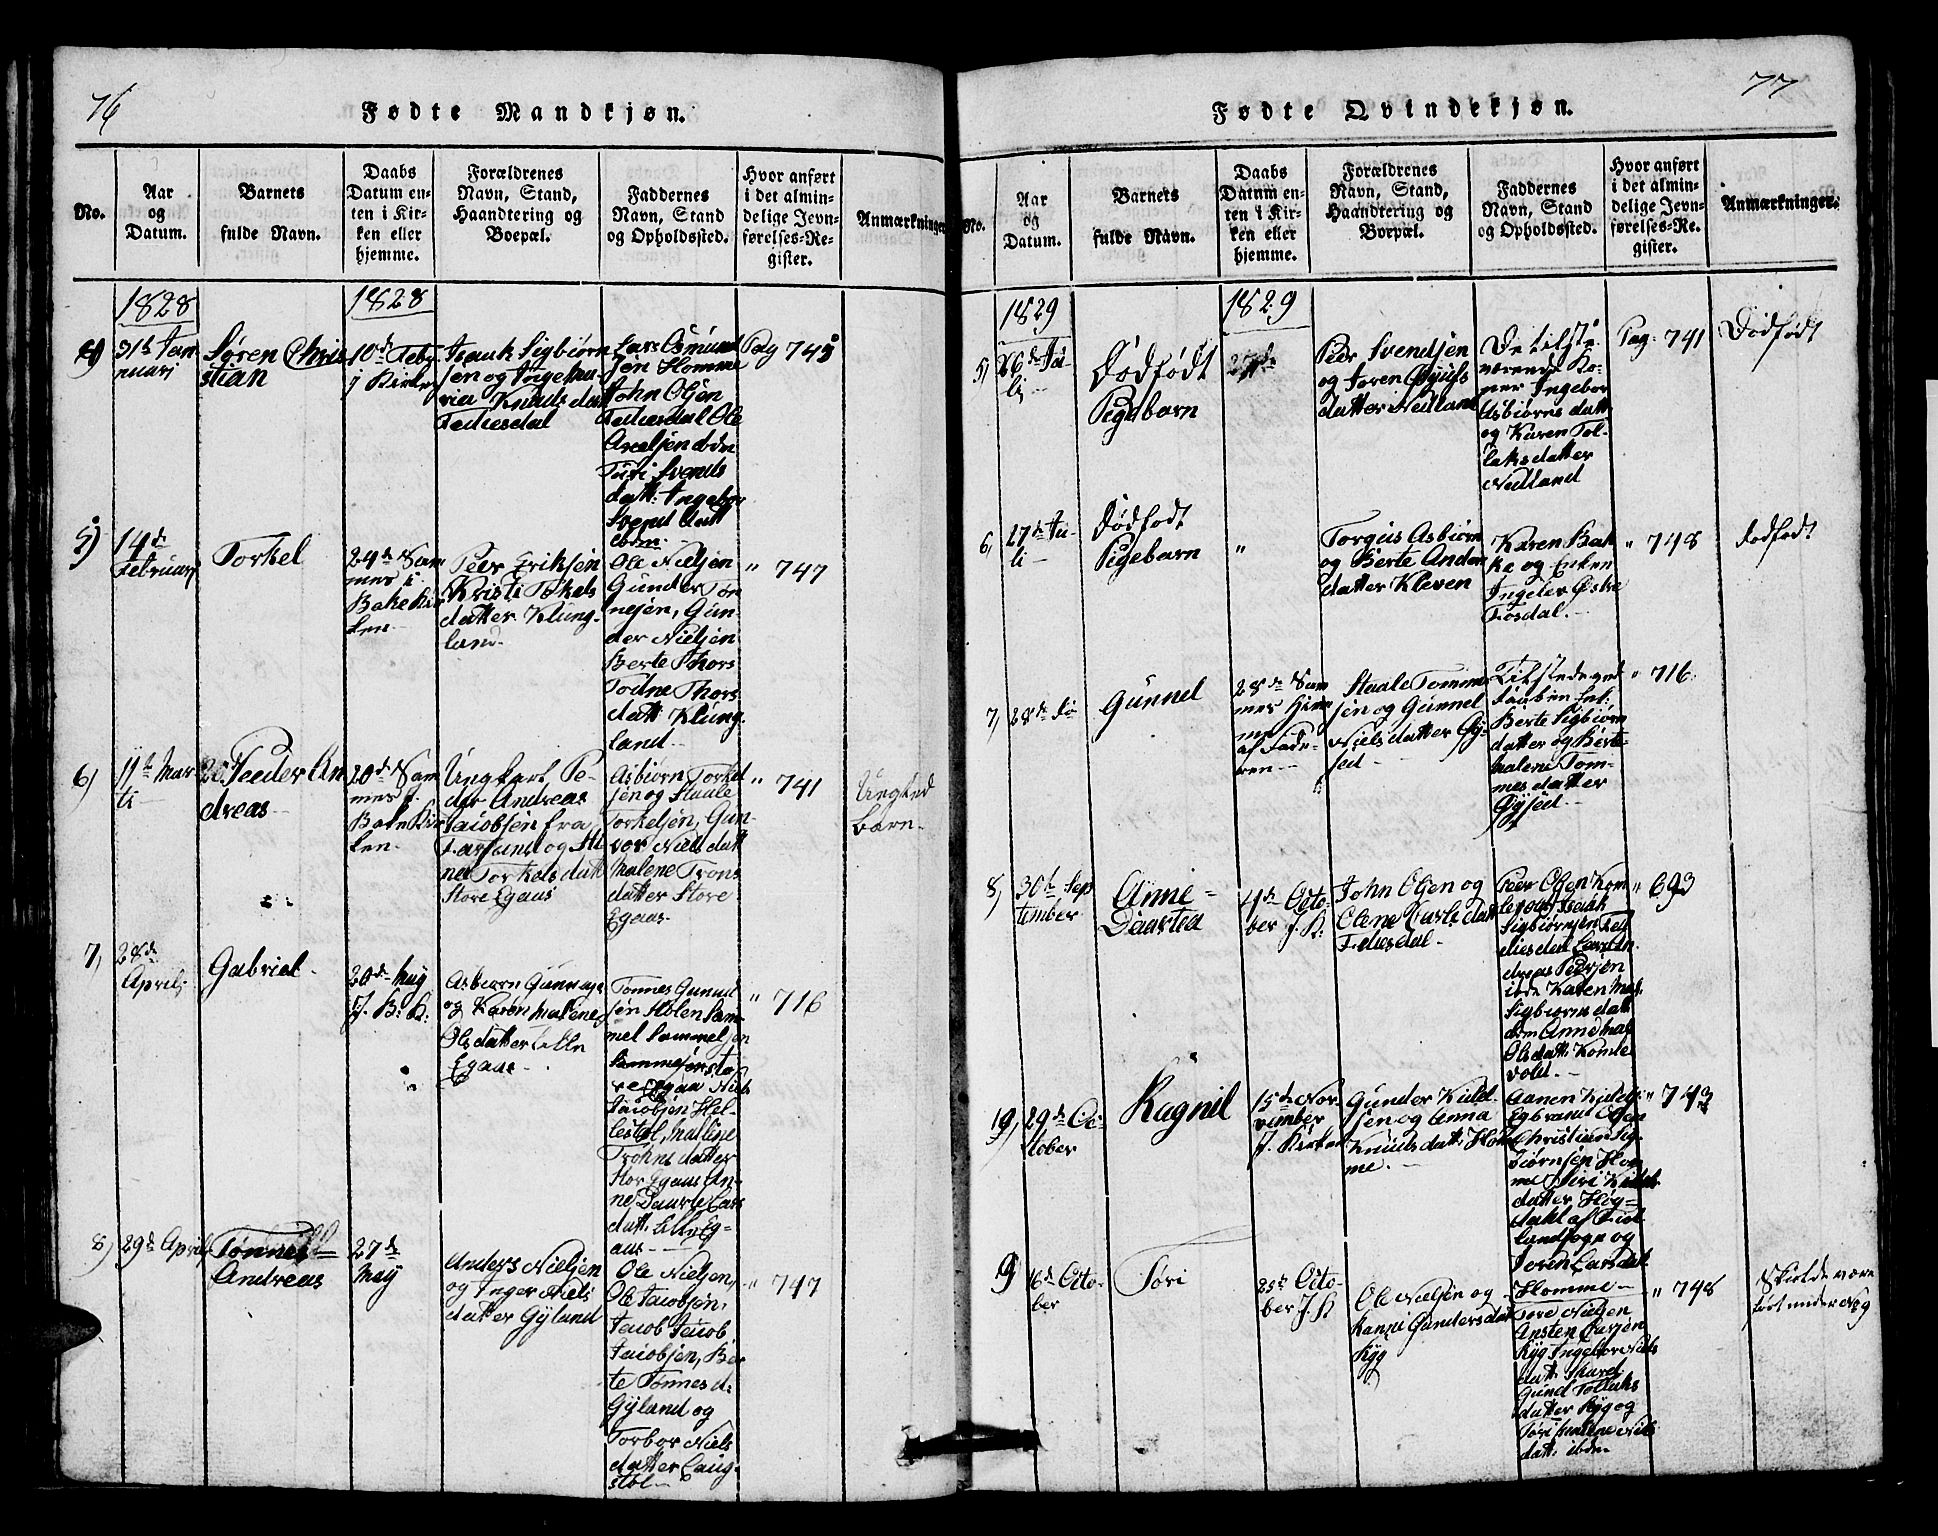 76
Fødte Mandkjøn.
No.
Aar
og
Datum.
Barnets
fulde Navn.
Daabs
Datum en-
ten i Kir-
ken eller
hjemme.
Forældrenes
Navn, Stand,
Haandtering og
Boepæl.
Faddernes
Navn, Stand
og Opholdssted.
Hvor anført
i det almin-
delige Jevn-
førelses-Re-
gister.
Anmærkninger
1828
1828
4)
31te Jan
nuarj
Søren Chris
stian
10de Feb
j Kirke
Isaak Sigbiørn
sen og Inge
Knuds dat
Fediesdal
Lars Osmund
sen Homme
John Olsen
Fediesdal Ole
Axelsen ibdm
Turi Svends
datt: Ingebor
Svend datt
ibdm.
Pag 745
5)
14de
Februarj
Torkel
24de Sam
mes i
Bake Kir
ken
Peer Eriksen
Kristi Torkels
datter Klung-
land.
Ole Nielsen
Gunder Tøn
nesen, Gun-
der Nielsen
Berte Thors
Todne Thors
datt Klung-
land
" 747
6)
11te Mar
ti
Peeder An
dreas
20de Sam
mes i
Bake Kir
ken.
Ungkarl Pe-
der Andreas
Jaiobsen fra
Farsund og
Torkels datt
Store Egaas
Asbiørn Torkel
sen og Staale
Torkelsen, Gun-
vor Niels datt
Malene Trons
datter Store
Egaas
" 741
Uegted
barn
7)
28de
April
Gabriel
20de May
J. B: K:
Asbiørn
og Karen Malene
Olsdatter Lille
Egaas
Tønnes Gunnul
sen Stolen Sam-
mel Sammelsen
Egaa Niels
Jaiobsen Hel-
lestøl, Maline
Trohns datter
Stor Egaas An-
ne Daarte Lars
datt: Lille Eg-
aas
" 716
8)
29de April
Tønnes
Andreas
27de
May
Anders Nielsen
og Inger Niels
datter Gyland
Ole Nielsen,
Ole Jaiobsen,
Jacob Jacob
Jaiobsen, Ber
te Tønnes d:
Gyland og
Torbor Niels
datter Laug-
støl
" 747
77
Fødte Qvindekjøn.
No.
Aar
og
Datum.
Barnets
fulde Navn.
Daabs
Datum en-
ten i Kir-
ken eller
hjemme.
Forældrenes
Navn, Stand,
Haandtering og
Boepæl.
Faddernes
Navn, Stand
og Opholdssted.
Hvor anført
i det almin-
delige Jevn-
førelses-Re-
gister.
Anmærkninger.
1829
1829
5)
26de Ju-
li
Dødfødt
Pigebarn
27de
Peer Svendsen
og Joren
datter Nedland
De tilste
værende Ko-
ner Ingebor
Asbiørns datt
og Karen Tol-
laksdatter
Nedland
Pag: 741
Dødfødt
6)
27de Ju-
li
Dødfødt
Pigebarn
"
Torgus Asbiørn
og Berte Anders
datter Kleven
Karen Bak
ke og Enken
Ingeler Østre
Fosdal.
" 748
dødfødt
7)
28de do
Gunnel
28de Sam
mes Hjem
me
af Fade-
ren
Staale Tomme
sen og Gunnel
Nielsdatter Gy-
sed
Tilstede ved
daaben
Berte Sigbiørn
datter og Berte
Malene Tom-
mes datter
Gysed
" 716
8)
30te Sep
tember
Anne
Daartea
4de Octo-
ber J. K:
John Olsen og
Elene Carls datt
Fediesdal
Peer Olsen Kom
levold Isaak
Sigbiørnsen Fed
diesdal Lars An-
dreas Pedersen
ibdm Karen Mar.
Sigbiørns datt
ibdm Anne Mar
Olsdatt: Komle
vold.
" 693
19)
29de Oc-
tober
Ragnil
15de Nov-
vember
J. Kirken
Gunder Kield-
sen og Anna
Knuds datt: Hom
me.
Aanen Kields
Egbrand Olsen
Christian Sig-
biørnsen Hom
me Siri Kields
datter Høg-
dahl af Fied
landsogn og
Joren Lars datt.
Homme
" 743
9
6de Octo-
ber
Søri
25de Octo-
ber J. K
Ole Nielsen og
Hanne Gunders dat
Ryg
Tore Nielsen
Ansten Larsen
Ryg Ingebor Niels
datt
gund Tolluks
datter Ryg og
Tøri Malene Niels
datt. ibdm
" 748
Skulde være
ført under No 9